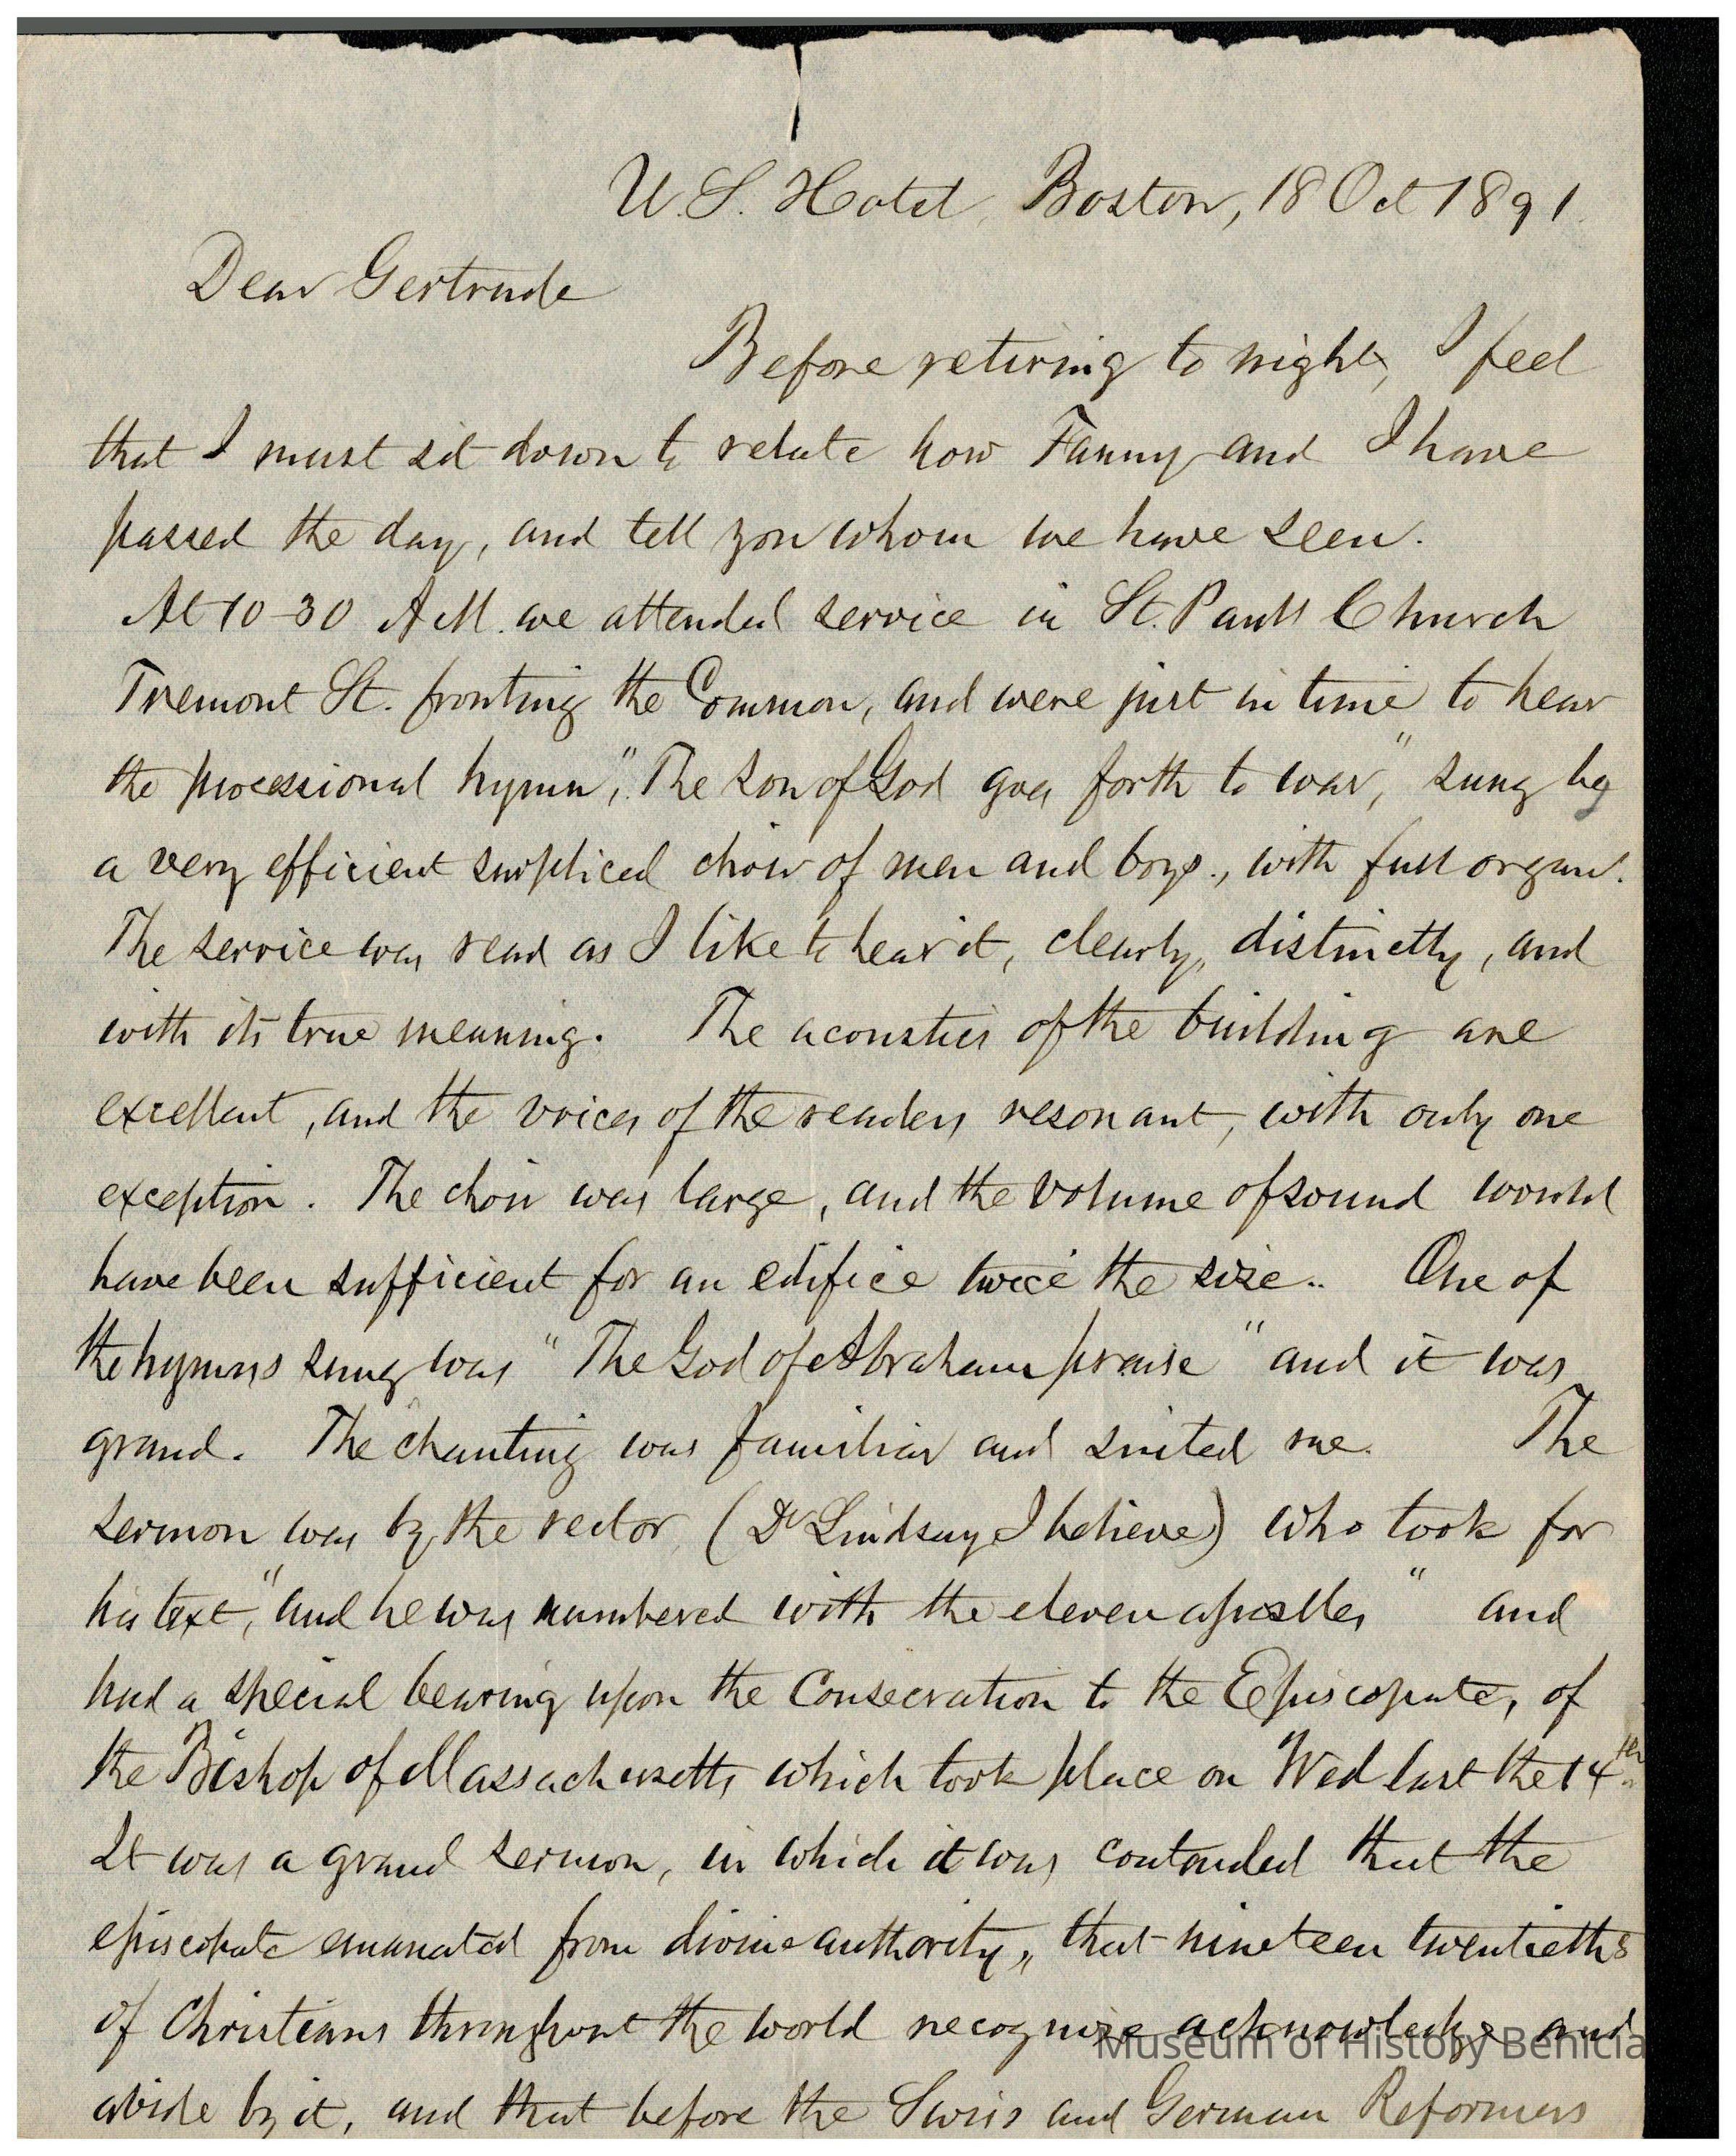 U.S. Hotel, Boston, 18 Oct 1891.
Dear Gertrude
Before retiring to night, I feel
that I must sit down to relate how Fanny and I have
passed the day, and tell you whom we have seen.
At 10-30 A.M. we attended service in St. Pauls Church
Tremont St. fronting the Common, and were just in time to hear
the processional hymn, "The son of God goes forth to war," sung by
a very efficient surpliced choir of men and boys., with full organ.
The service was read as I like to hear it, clearly, distinctly, and
with its true meaning. The acoustics of the building are
excellent, and the voices of the readers resonant, with only one
exception. The choir was large, and the volume of sound would
have been sufficient for an edifice twice the size.. One of
the hymns sung was "The God of Abraham praise" and it was
grand. The chanting was familiar and suited me. The
sermon was by the rector (Dr Lindsay I believe) who took for
his text, "and he was numbered with the eleven apostles" and
had a special bearing upon the Consecration to the Episcopate, of
the Bishop of Massachusetts which took place on Wed last the 14th
It was a grand sermon, in which it was contended that the
episcopate emanated from divine authority, that nineteen twentieths
of Christians throughout the world recognize acknowledge and
abide by it, and that before the Swiss and German Reformers
Museum of History Benicia